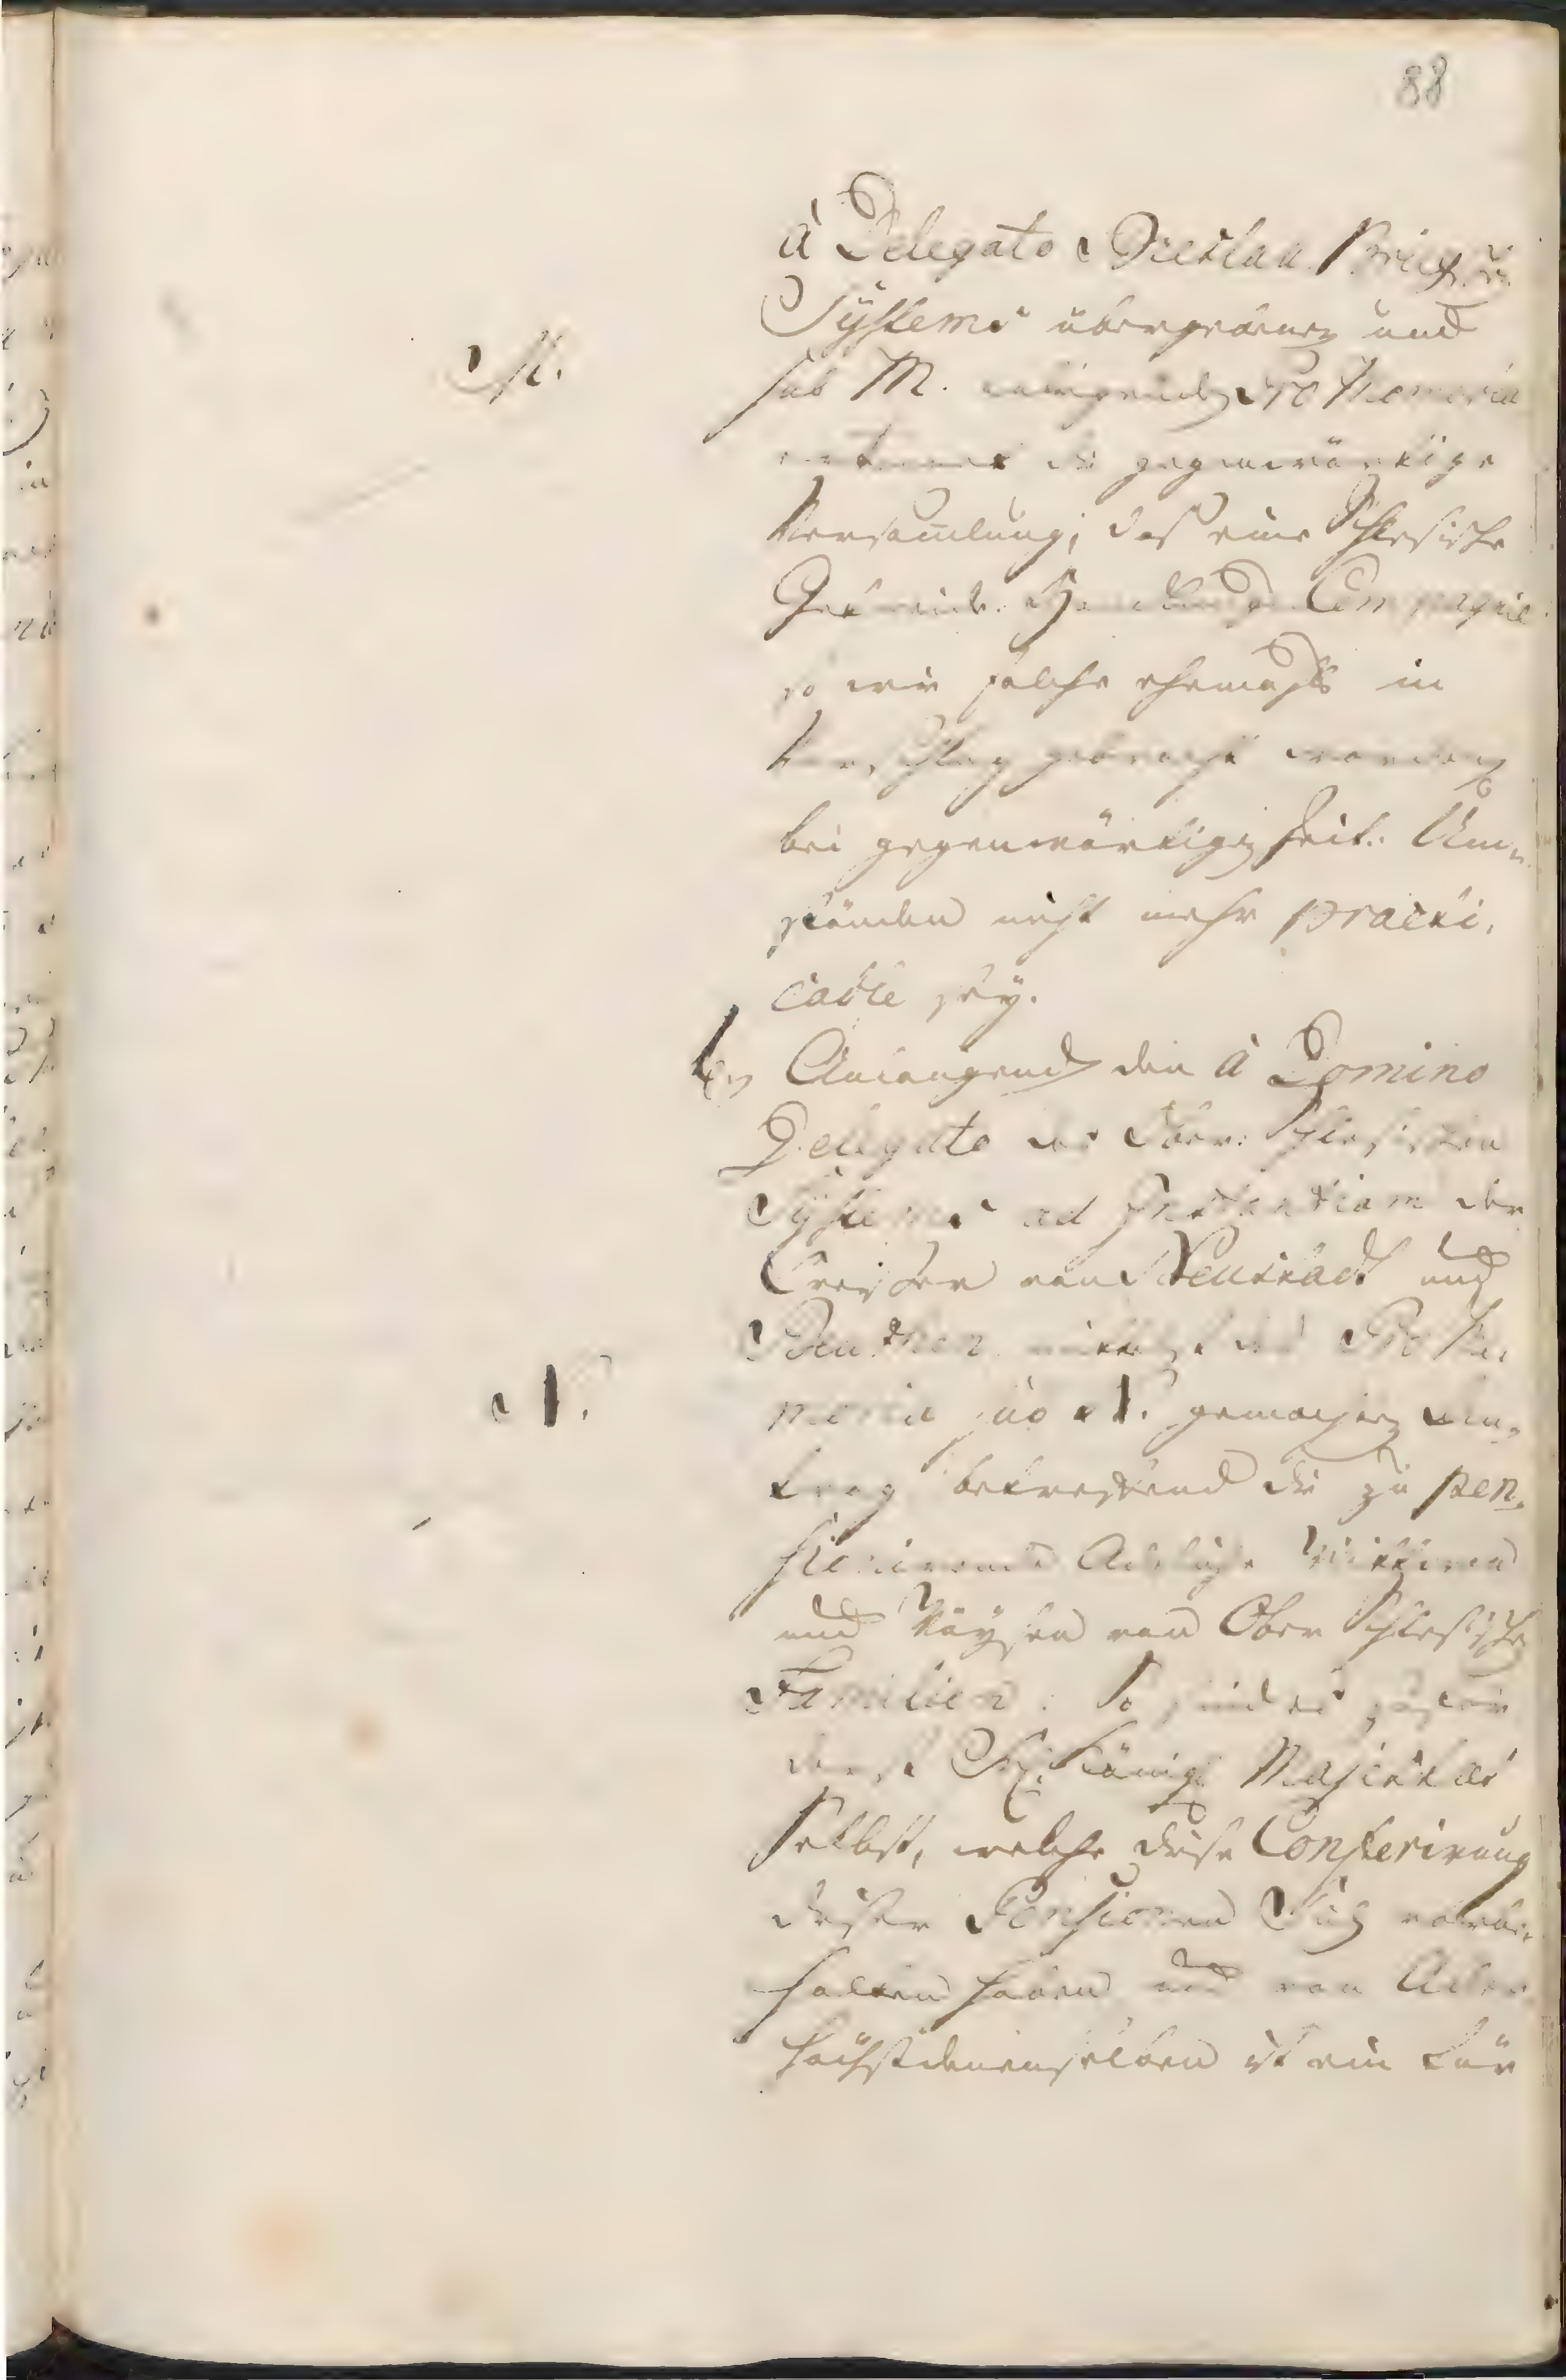 88
à Delegato Breslau Brieg.
Systems übergebenen und
M.
sub M. anliegenden Pro Memoria
erkennet die gegenwärtige
Versammlung, daß eine Schlesische
Getreide Handlungs Compagnie
so wie solche ehemahls in
Vorschlag gebracht worden
bei gegenwärtigen Zeit Um-
ständen nicht mehr practi-
cable sey.
Anlangend den à Domino
Delegato des Ober Schlesischen
Systems ad Instantiam der
Creyser von Neustadt und
Beuthen mittelst des Pro Me-
N.
moria sub N. gemachten An-
trag betreffend die zu pen-
sionirende Adeliche Wittwen
und Waysen von Ober Schlesischen
Familien: So sind es
Sr. Königl. Majestaet
Selbst, welche diese Conferirung
dieser Pensionen Sich vorbe-
halten haben und von Aller-
höchstdenenselben ist ein für